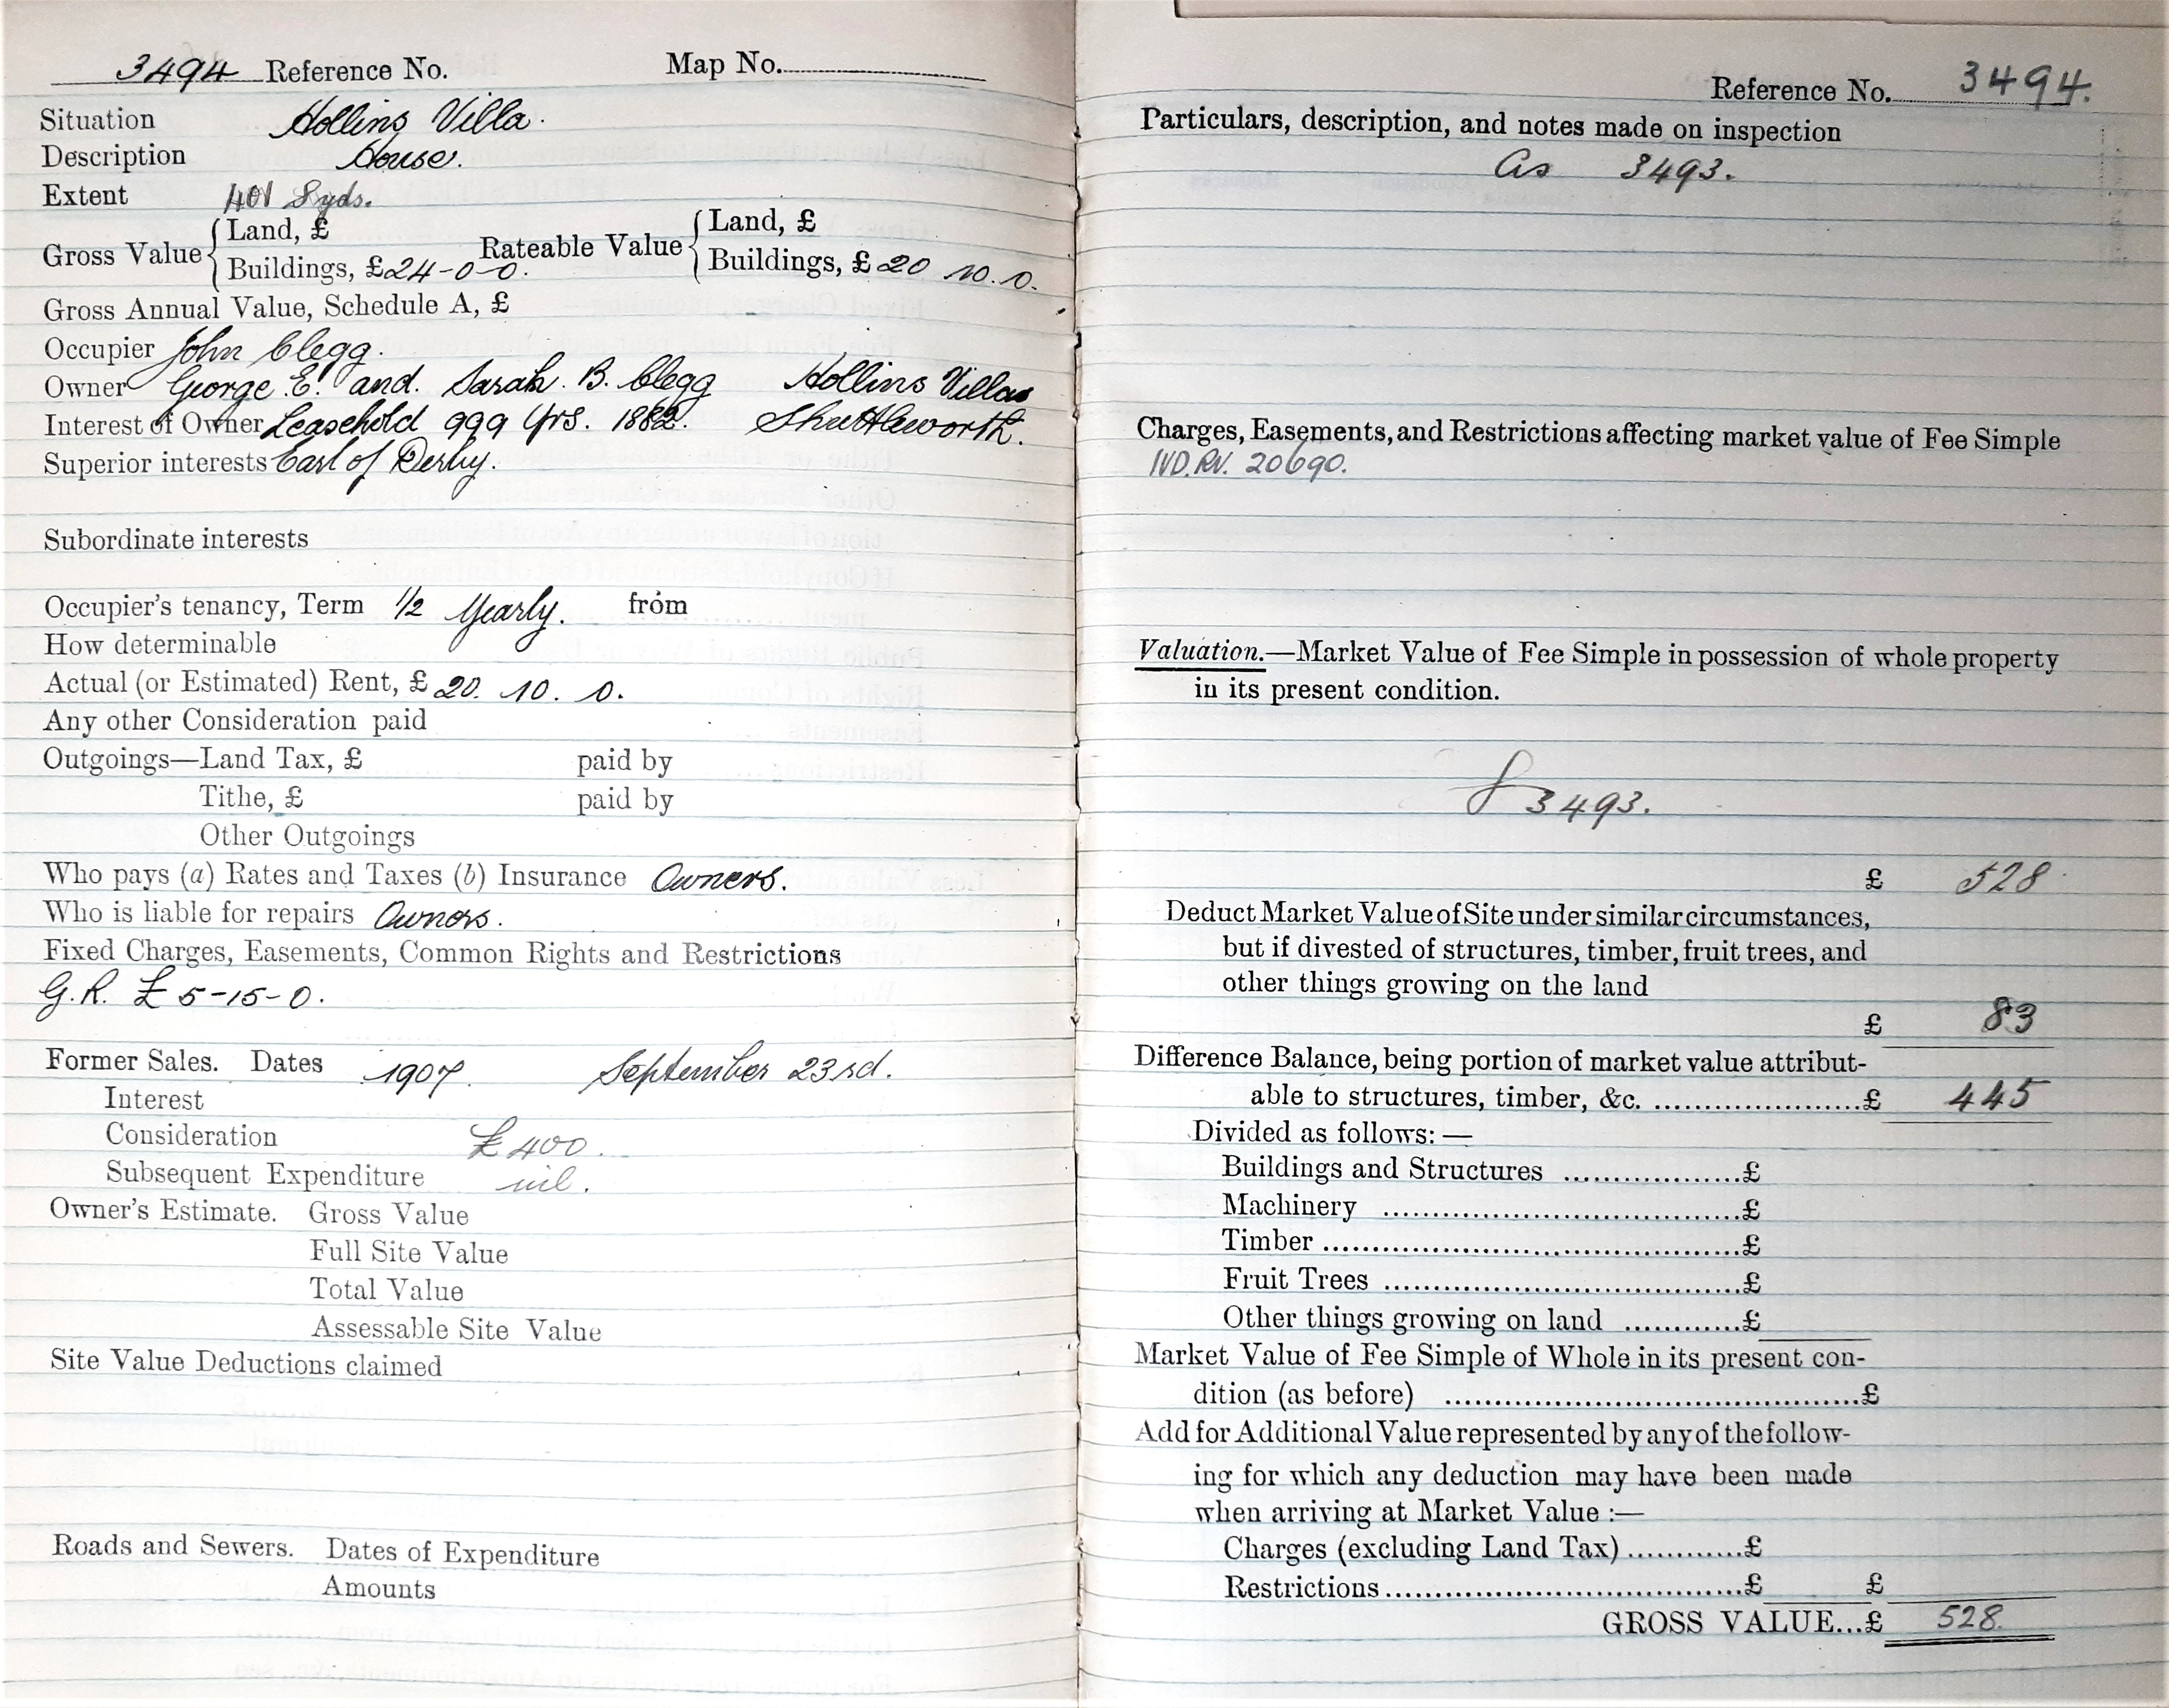 3494 Reference No. Map No.
Situation Hollins Villa.
Description House.
Extent 401 Syds.
Gross Value { Land, £ Rateable Value { Land, £
Buildings, £24-0-0. Buildings, £20 10.0.
Gross Annual Value, Schedule A, £
Occupier John Clegg.
Owner George E. and. Sarah. B. Clegg Hollins Villas
Interest of Owner Leasehold 999 Yrs. 1882. Shuttleworth.
Superior interests Earl of Derby.
Subordinate interests
Occupier's tenancy, Term 1/2 Yearly. from
How determinable
Actual (or Estimated) Rent, £20. 10. 0.
Any other Consideration paid
Outgoings—Land Tax, £ paid by
Tithe, £ paid by
Other Outgoings
Who pays (a) Rates and Taxes (b) Insurance Owners.
Who is liable for repairs Owners.
Fixed Charges, Easements, Common Rights and Restrictions
G.R. £5-15-0.
Former Sales. Dates 1907. September 23rd.
Interest
Consideration £400.
Subsequent Expenditure nil.
Owner's Estimate. Gross Value
Full Site Value
Total Value
Assessable Site Value
Site Value Deductions claimed
Roads and Sewers. Dates of Expenditure
Amounts
Reference No. 3494.
Particulars, description, and notes made on inspection
As 3493.
Charges, Easements, and Restrictions affecting market value of Fee Simple
IVD.RV. 20690.
Valuation.—Market Value of Fee Simple in possession of whole property
in its present condition.
3493.
£ 528
Deduct Market Value of Site under similar circumstances,
but if divested of structures, timber, fruit trees, and
other things growing on the land
£ 83
Difference Balance, being portion of market value attribut-
able to structures, timber, &c. ....................£ 445
Divided as follows:—
Buildings and Structures ..................£
Machinery ....................................£
Timber ..........................................£
Fruit Trees ....................................£
Other things growing on land ............£
Market Value of Fee Simple of Whole in its present con-
dition (as before) ..........................................£
Add for Additional Value represented by any of the follow-
ing for which any deduction may have been made
when arriving at Market Value :—
Charges (excluding Land Tax) ............£
Restrictions ....................................£ £
GROSS VALUE...£ 528.